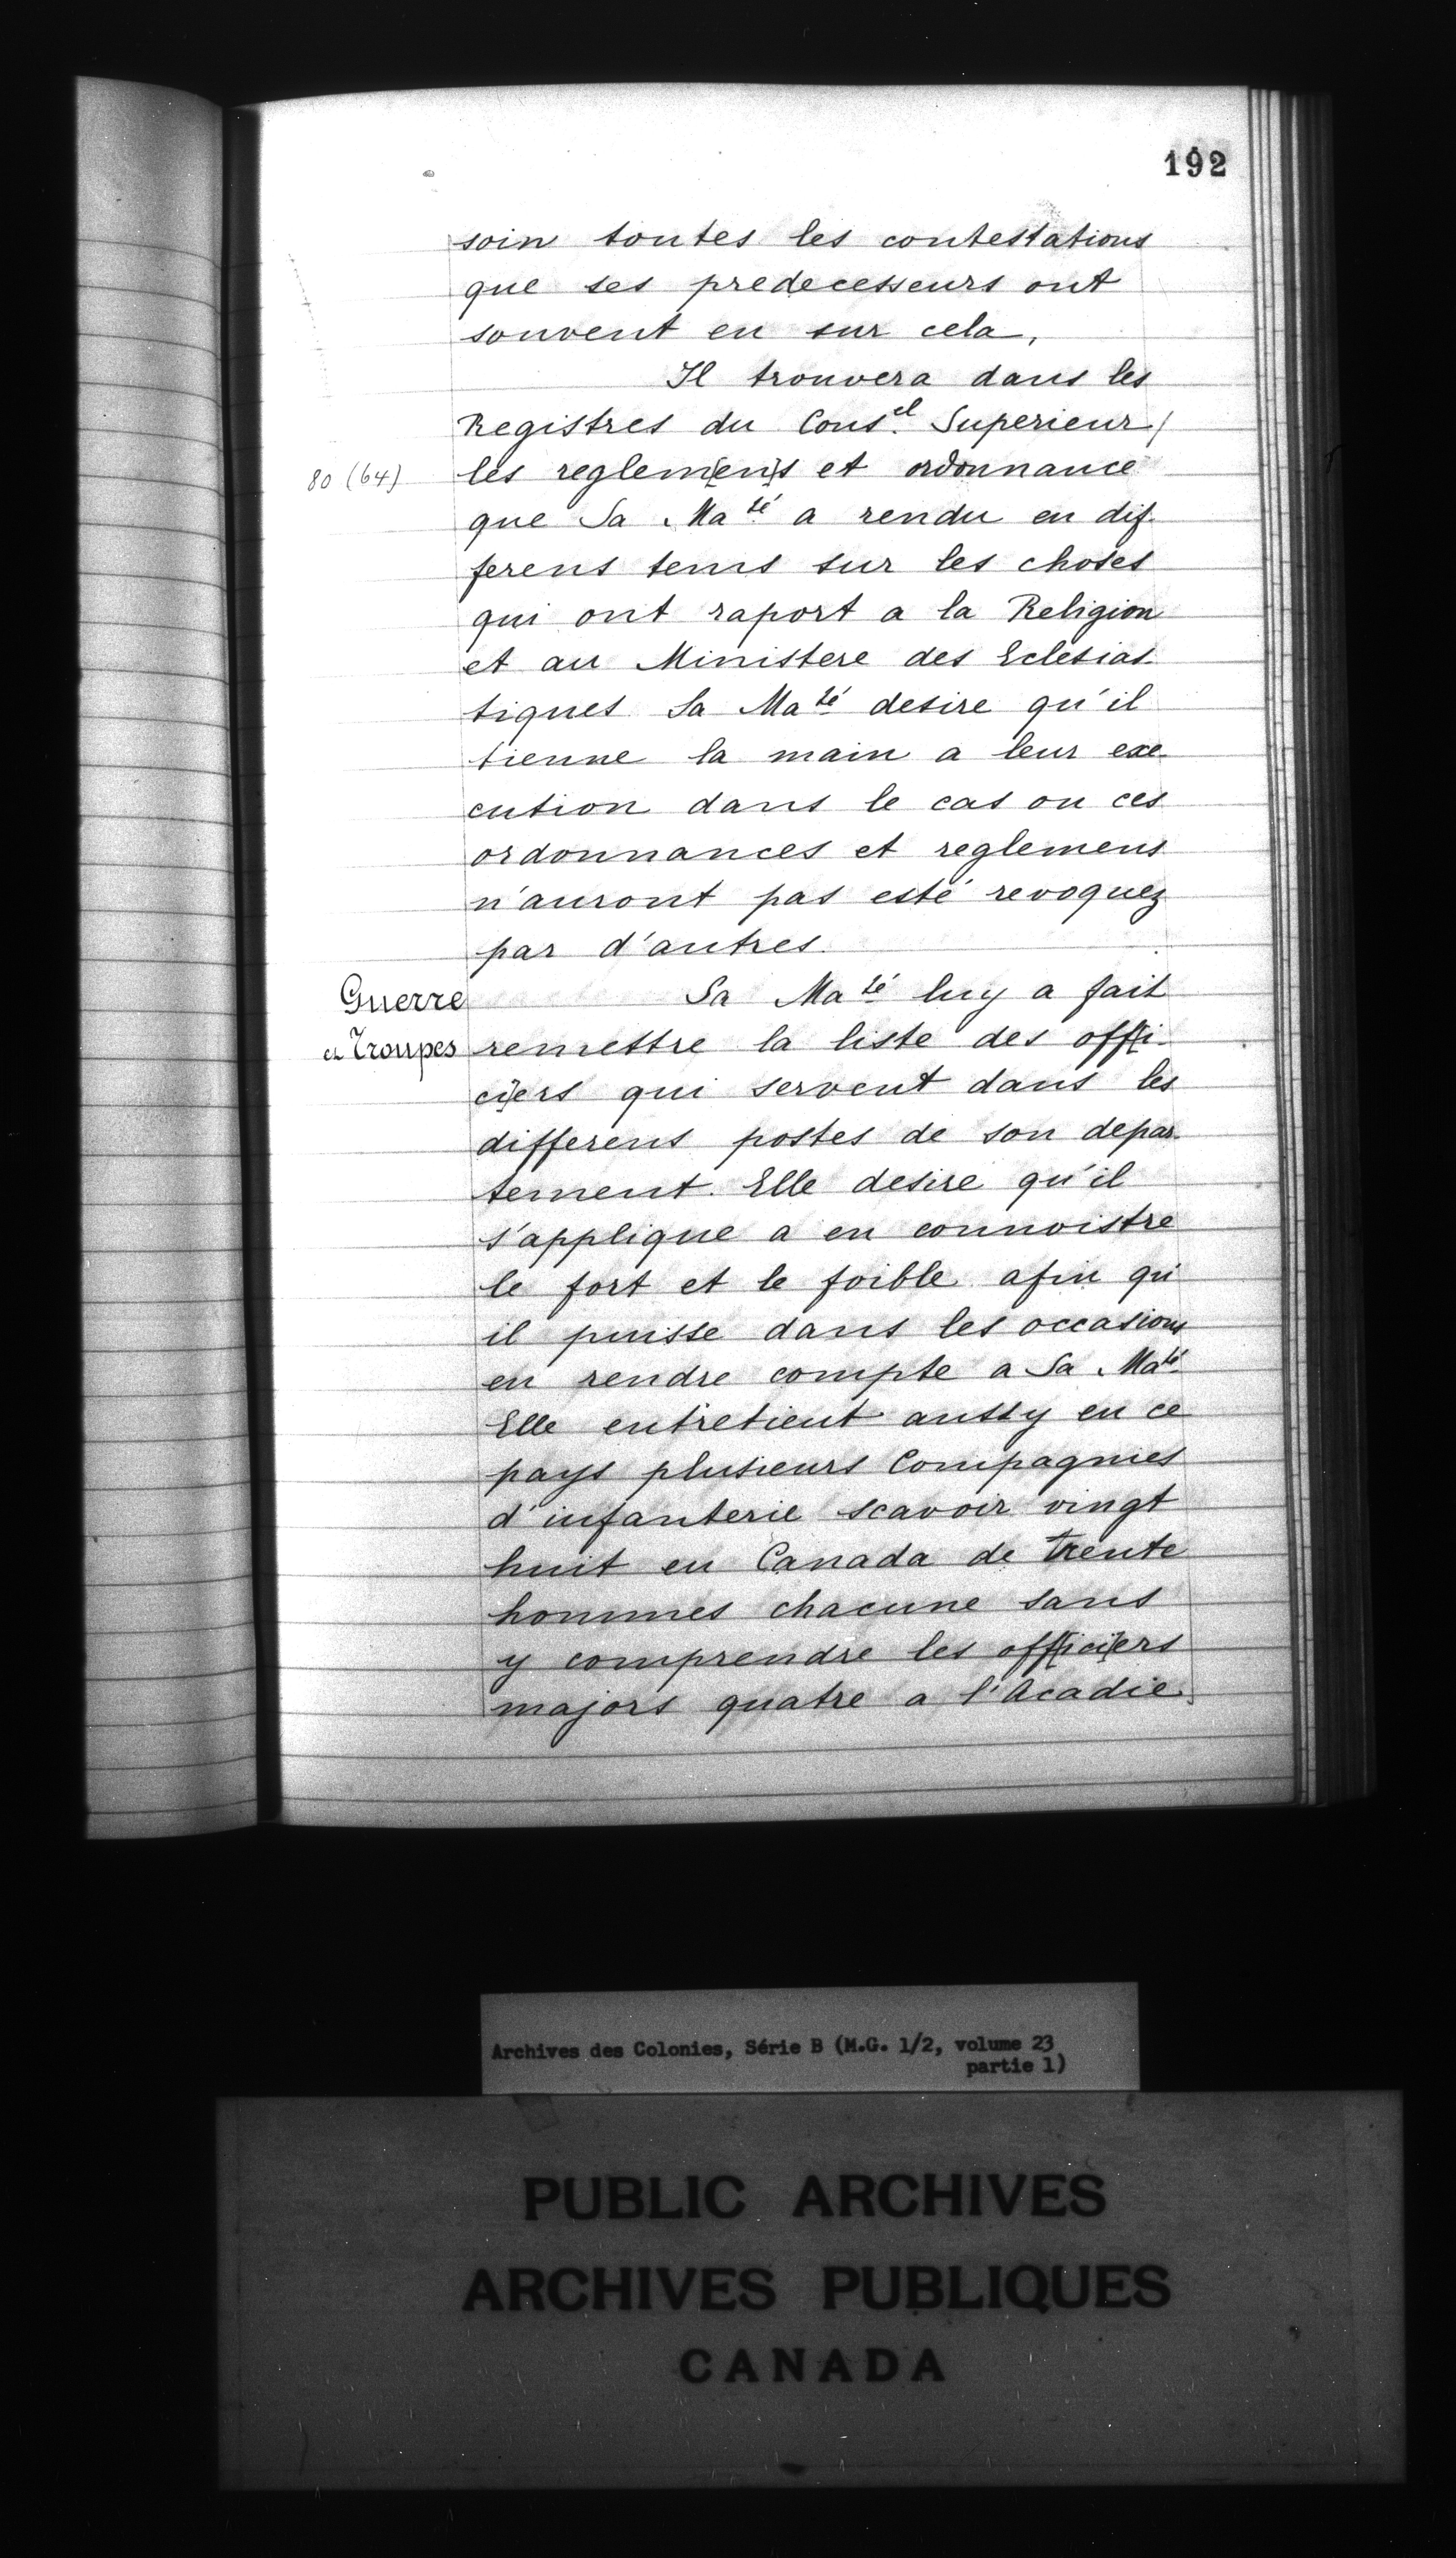 192
soin toutes les contestations
que ses predecesseurs ont
souvent eu sur cela,
Il trouvera dans les
Registres du Cons.el Superieur/
80 (64)
les reglem[en]s et ordonnance
que Sa Ma.té a rendu en dif
ferens tems sur les choses
qui ont raport a la Religion
et au Ministere des Eclesias-
tiques Sa Ma.té desire qu'il
tienne la main a leur exe-
cution dans le cas ou ces
ordonnances et reglemens
n'auront pas esté revoquez
par d'autres.
Guerre
et Troupes
Sa Ma.té luy a fait
remettre la liste des off[i-
ci]ers qui servent dans les
differens postes de son depar-
tement. Elle desire qu'il
s'applique a en connoistre
le fort et le foible afin qu'
il puisse dans les occasions
en rendre compte a Sa Ma.té
Elle entretient aussy en ce
pays plusieurs Compagnies
d'infanterie scavoir vingt
huit en Canada de trente
hommes chacune sans
y comprendre les off[ici]ers
majors quatre a l'Acadie
Archives des Colonies, Série B (M.G. 1/2, volume 23
partie 1)
PUBLIC ARCHIVES
ARCHIVES PUBLIQUES
CANADA